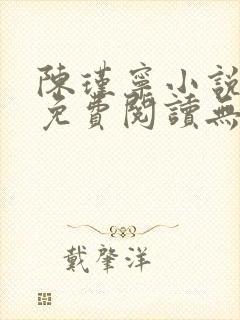 陳瑾寧小說
免費閱讀無
戴肇洋